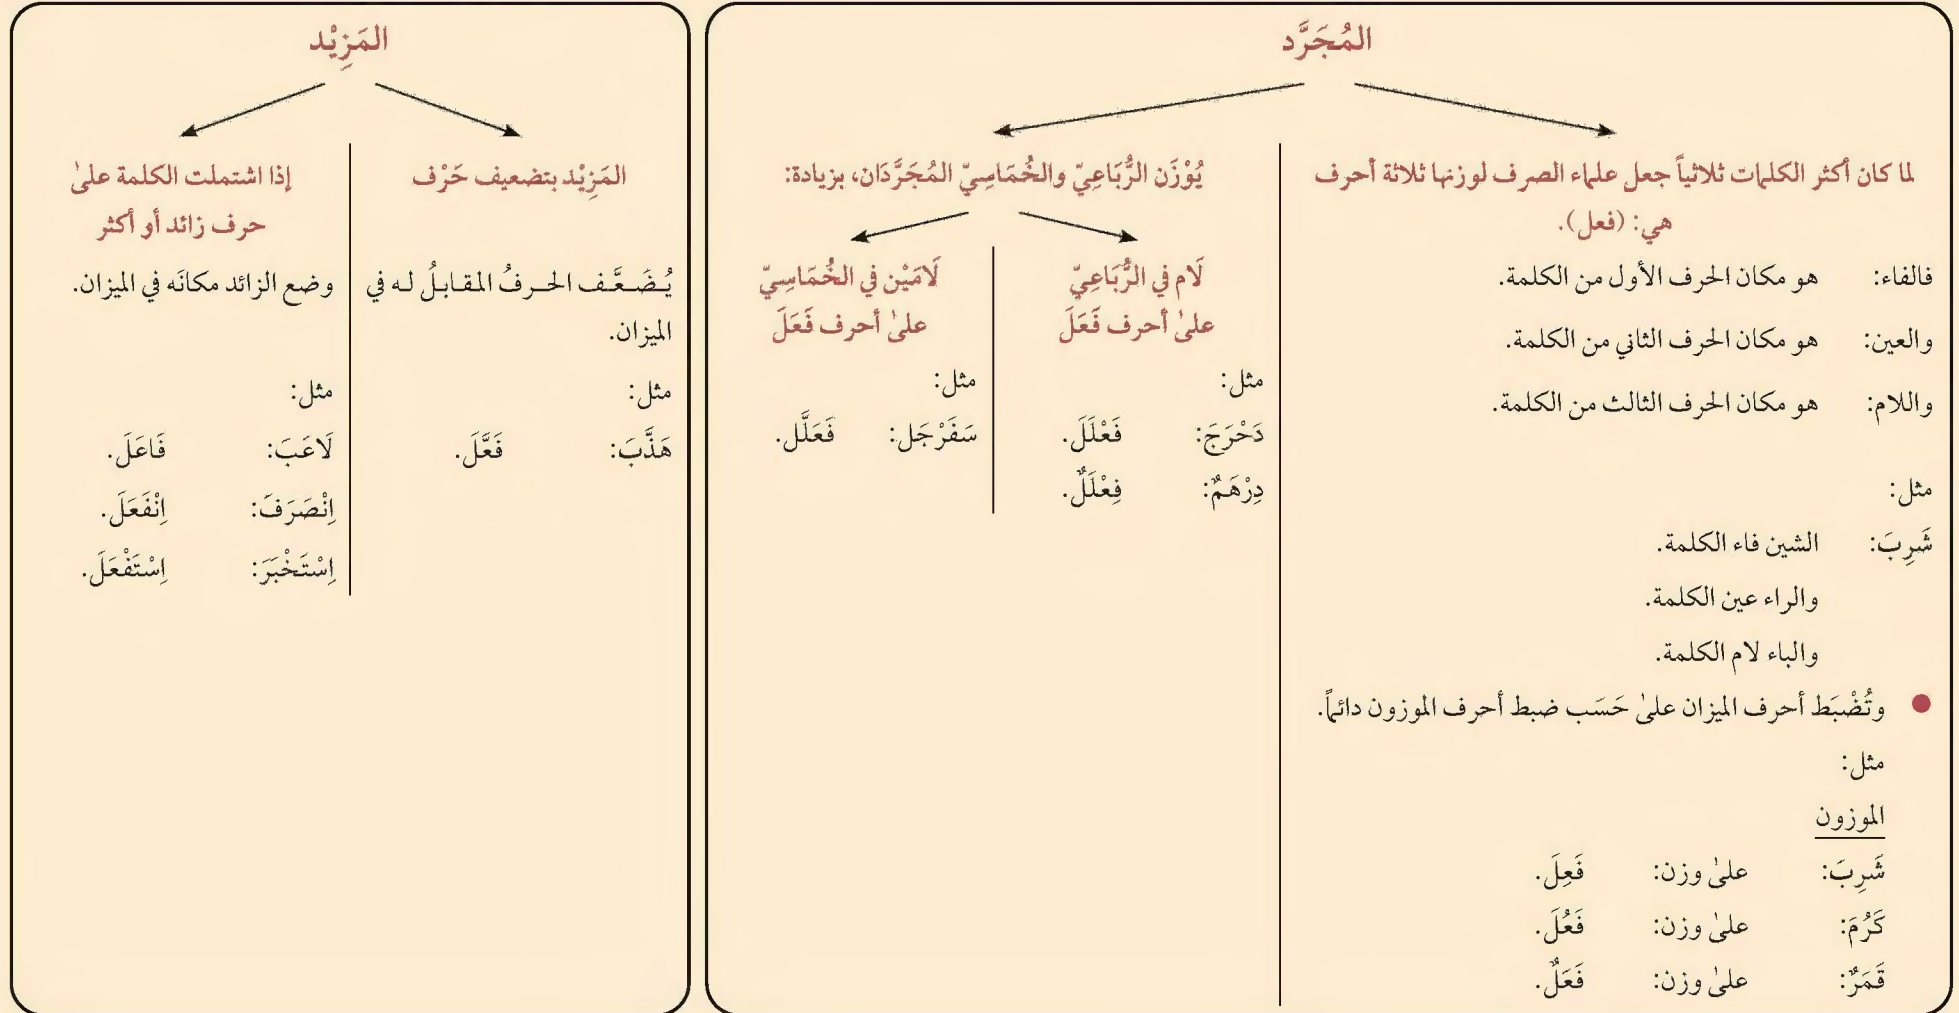 المُجَرَّد
لما كان أكثر الكلمات ثلاثياً جعل علماء الصرف لوزنها ثلاثة أحرف
هي: (فعل).
فالفاء: هو مكان الحرف الأول من الكلمة.
والعين: هو مكان الحرف الثاني من الكلمة.
واللام: هو مكان الحرف الثالث من الكلمة.
مثل:
شَرِبَ: الشين فاء الكلمة.
والراء عين الكلمة.
والباء لام الكلمة.
● وتُضْبَط أحرف الميزان علىٰ حَسَب ضبط أحرف الموزون دائماً.
مثل:
الموزون
شَرِبَ: علىٰ وزن: فَعِلَ.
كَرُمَ: علىٰ وزن: فَعُلَ.
قَمَرٌ: علىٰ وزن: فَعَلٌ.
يُوْزَن الرُّبَاعِيّ والخُمَاسِيّ المُجَرَّدَان، بزيادة:
لَام في الرُّبَاعِيّ
علىٰ أحرف فَعَلَ
مثل:
دَحْرَجَ: فَعْلَلَ.
دِرْهَمٌ: فِعْلَلٌ.
لَامَيْن في الخُمَاسِيّ
علىٰ أحرف فَعَلَ
مثل:
سَفَرْجَل: فَعَلَّل.
المَزِيْد
المَزِيْد بتضعيف حَرْف
يُضَعَّف الحرفُ المقابلُ له في
الميزان.
مثل:
هَذَّبَ: فَعَّلَ.
إذا اشتملت الكلمة علىٰ
حرف زائد أو أكثر
وضع الزائد مكانَه في الميزان.
مثل:
لَاعَبَ: فَاعَلَ.
اِنْصَرَفَ: اِنْفَعَلَ.
اِسْتَخْبَرَ: اِسْتَفْعَلَ.